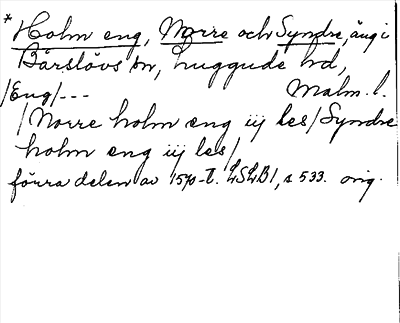 * Holm eng, Norre och Syndre, äng i
Bårslövs sn, Luggude hd,
/Eng/--- Malm. l.
/Norre holm eng iij les/Syndre
holm eng iij les/
förra delen av 1570-t. LSLB1, s 533. orig.